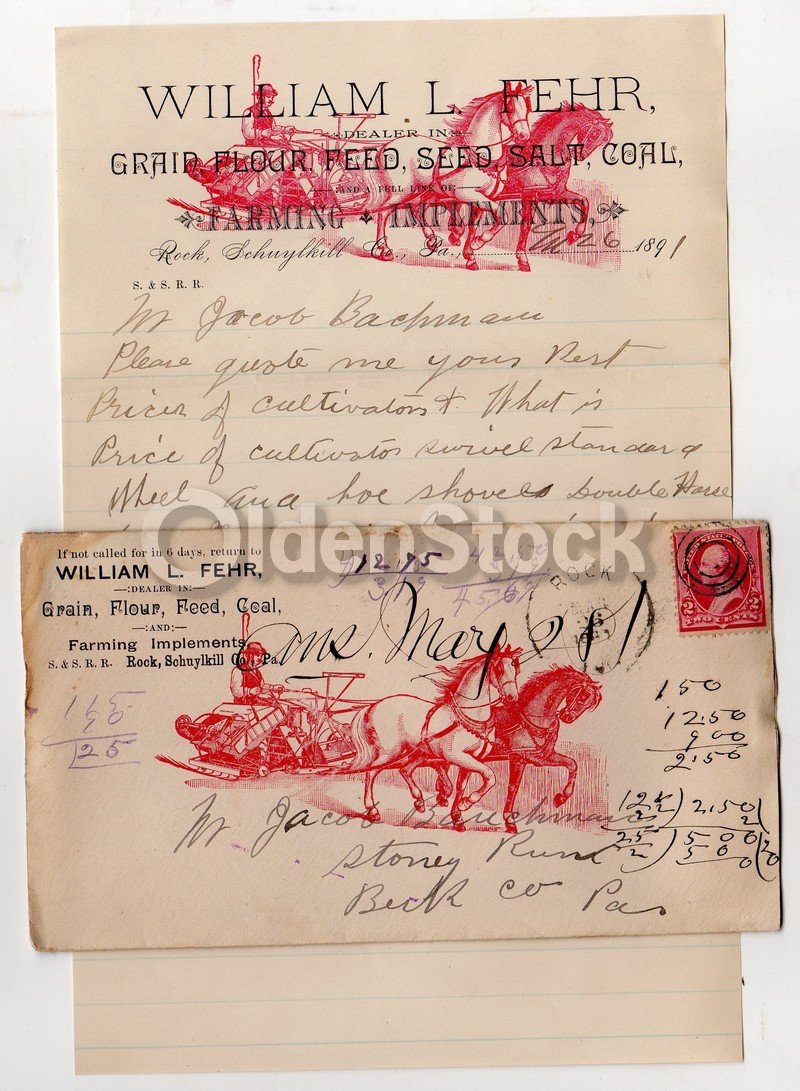 WILLIAM L. FEHR,
DEALER IN
GRAIN, FLOUR, FEED, SEED, SALT, COAL,
AND A FULL LINE OF
FARMING IMPLEMENTS,
Rock, Schuylkill Co., Pa., 26 1891
S. & S. R. R.
Mr Jacob Bachman
Please quote me your Best
Prices of cultivators & What is
Price of cultivator swivel standard
Wheel and hoe shovels Double Horse
OldenStock
If not called for in 6 days, return to
WILLIAM L. FEHR,
DEALER IN:
Grain, Flour, Feed, Coal,
AND:
Farming Implements,
S. & S. R. R. Rock, Schuylkill Co., Pa.
12.75
3/19
ROCK
26
TWO CENTS
2 2
Ans. May 2d/91
115
90
25
150
12.50
9 00
2.50
2.50
2
25
2
5 00
5 0
0
20
Mr Jacob Bauchman
Stoney Run
Berk Co Pa